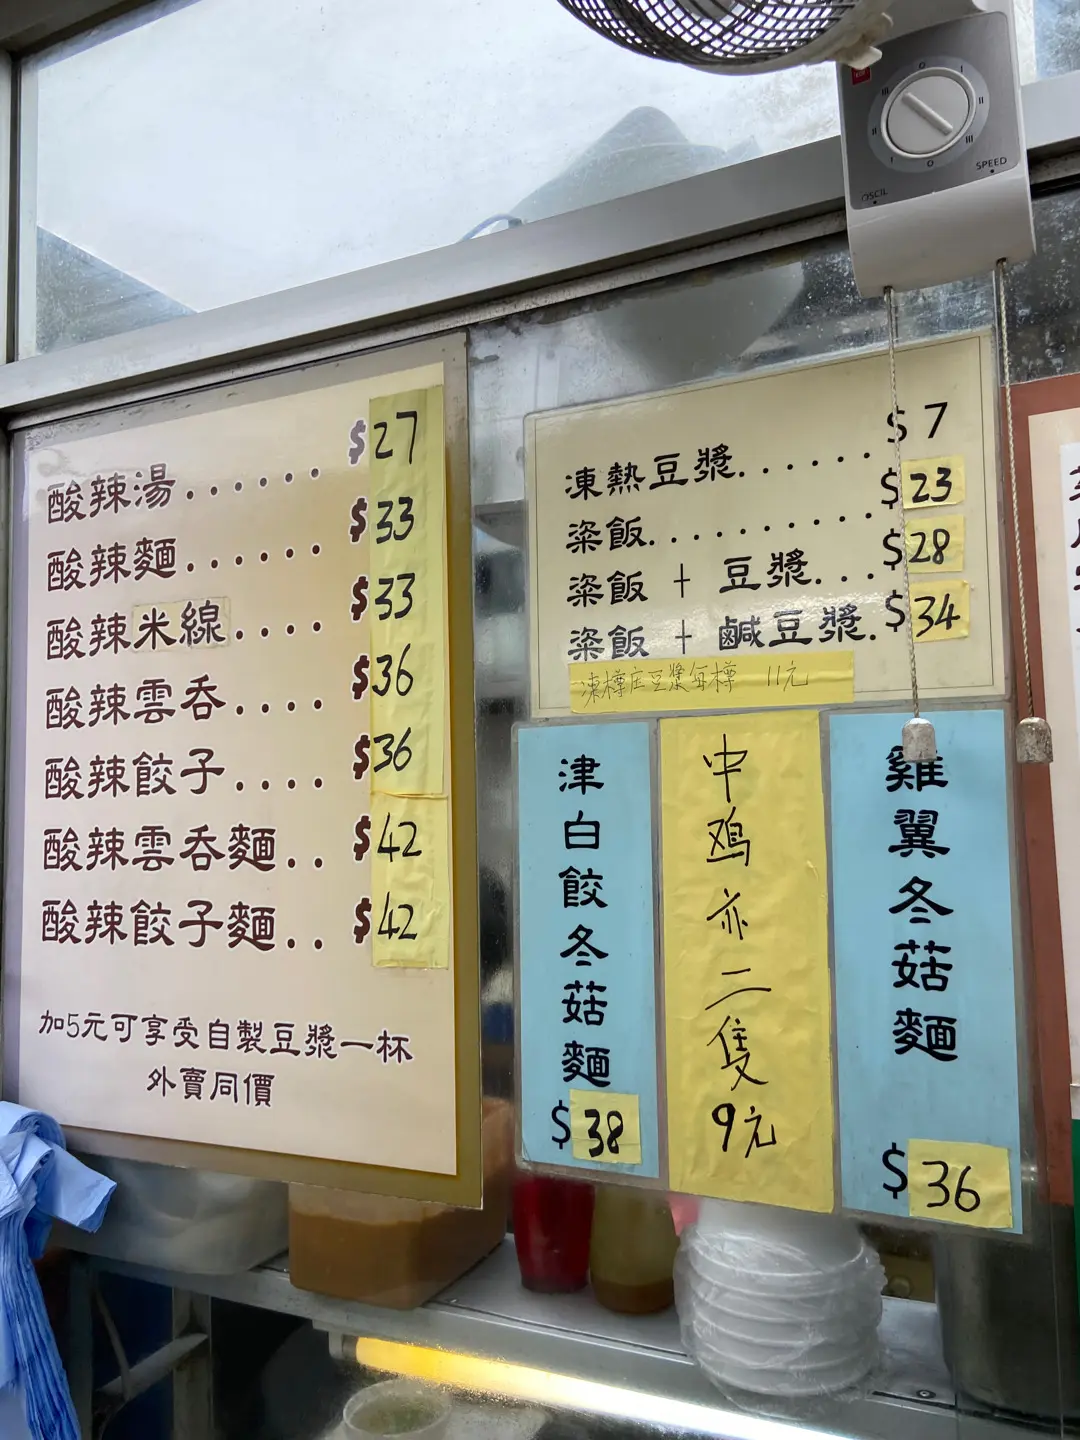 酸辣湯...... $27
酸辣麵...... $33
酸辣米線.... $33
酸辣雲呑.... $36
酸辣餃子.... $36
酸辣雲呑麵.. $42
酸辣餃子麵.. $42
加5元可享受自製豆漿一杯
外賣同價
凍熱豆漿...... $7
粢飯......... $23
粢飯 + 豆漿... $28
粢飯 + 鹹豆漿. $34
凍樽庄豆漿每樽 11元
津白餃冬菇麵
$38
中鸡亦二隻
9元
雞翼冬菇麵
$36
OSCIL
SPEED